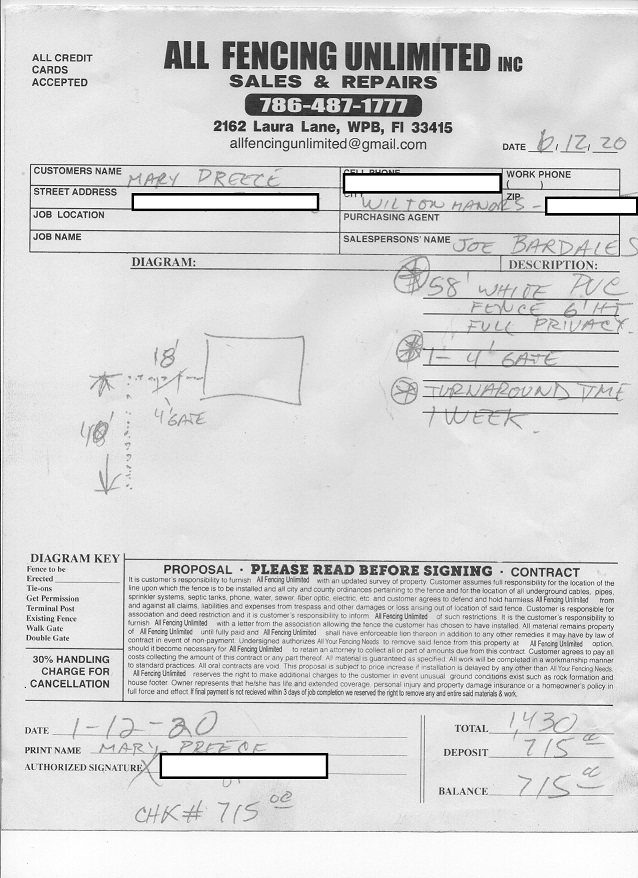 ALL CREDIT
CARDS
ACCEPTED
ALL FENCING UNLIMITED INC
SALES & REPAIRS
786-487-1777
2162 Laura Lane, WPB, Fl 33415
allfencingunlimited@gmail.com
DATE 12, 20
CUSTOMERS NAME MARY PREECE
WORK PHONE
( )
STREET ADDRESS
WILTON MANORS -
ZIP
JOB LOCATION
PURCHASING AGENT
JOB NAME
SALESPERSONS' NAME JOE BARDALES
DIAGRAM:
DESCRIPTION:
58' WHITE PVC
FENCE 6' HT
FULL PRIVACY
1- 4' GATE
TURNAROUND TIME
1 WEEK.
18'
4' GATE
40'
DIAGRAM KEY
Fence to be
Erected
Tie-ons
Get Permission
Terminal Post
Existing Fence
Walk Gate
Double Gate
30% HANDLING
CHARGE FOR
CANCELLATION
PROPOSAL · PLEASE READ BEFORE SIGNING · CONTRACT
It is customer's responsibility to furnish All Fencing Unlimited with an updated survey of property. Customer assumes full responsibility for the location of the
line upon which the fence is to be installed and all city and county ordinances pertaining to the fence and for the location of all underground cables, pipes,
sprinkler systems, septic tanks, phone, water, sewer, fiber optic, electric, etc. and customer agrees to defend and hold harmless All Fencing Unlimited from
and against all claims, liabilities and expenses from trespass and other damages or loss arising out of location of said fence. Customer is responsible for
association and deed restriction and it is customer's responsibility to inform All Fencing Unlimited of such restrictions. It is the customer's responsibility to
furnish All Fencing Unlimited with a letter from the association allowing the fence the customer has chosen to have installed. All material remains property
of All Fencing Unlimited until fully paid and All Fencing Unlimited shall have enforceable lien thereon in addition to any other remedies it may have by law of
contract in event of non-payment. Undersigned authorizes All Your Fencing Needs to remove said fence from this property at All Fencing Unlimited option,
should it become necessary for All Fencing Unlimited to retain an attorney to collect all or part of amounts due from this contract. Customer agrees to pay all
costs collecting the amount of this contract or any part thereof. All material is guaranteed as specified. All work will be completed in a workmanship manner
to standard practices. All oral contracts are void. This proposal is subject to price increase if installation is delayed by any other than All Your Fencing Needs.
All Fencing Unlimited reserves the right to make additional charges to the customer in event unusual ground conditions exist such as rock formation and
house footer. Owner represents that he/she has life and extended coverage, personal injury and property damage insurance or a homeowner's policy in
full force and effect. If final payment is not recieved within 3 days of job completion we reserved the right to remove any and entire said materials & work.
DATE 1-12-20
PRINT NAME MARY PREECE
AUTHORIZED SIGNATURE X
CHK# 715 00
TOTAL 1430
DEPOSIT 715 00
BALANCE 715 00